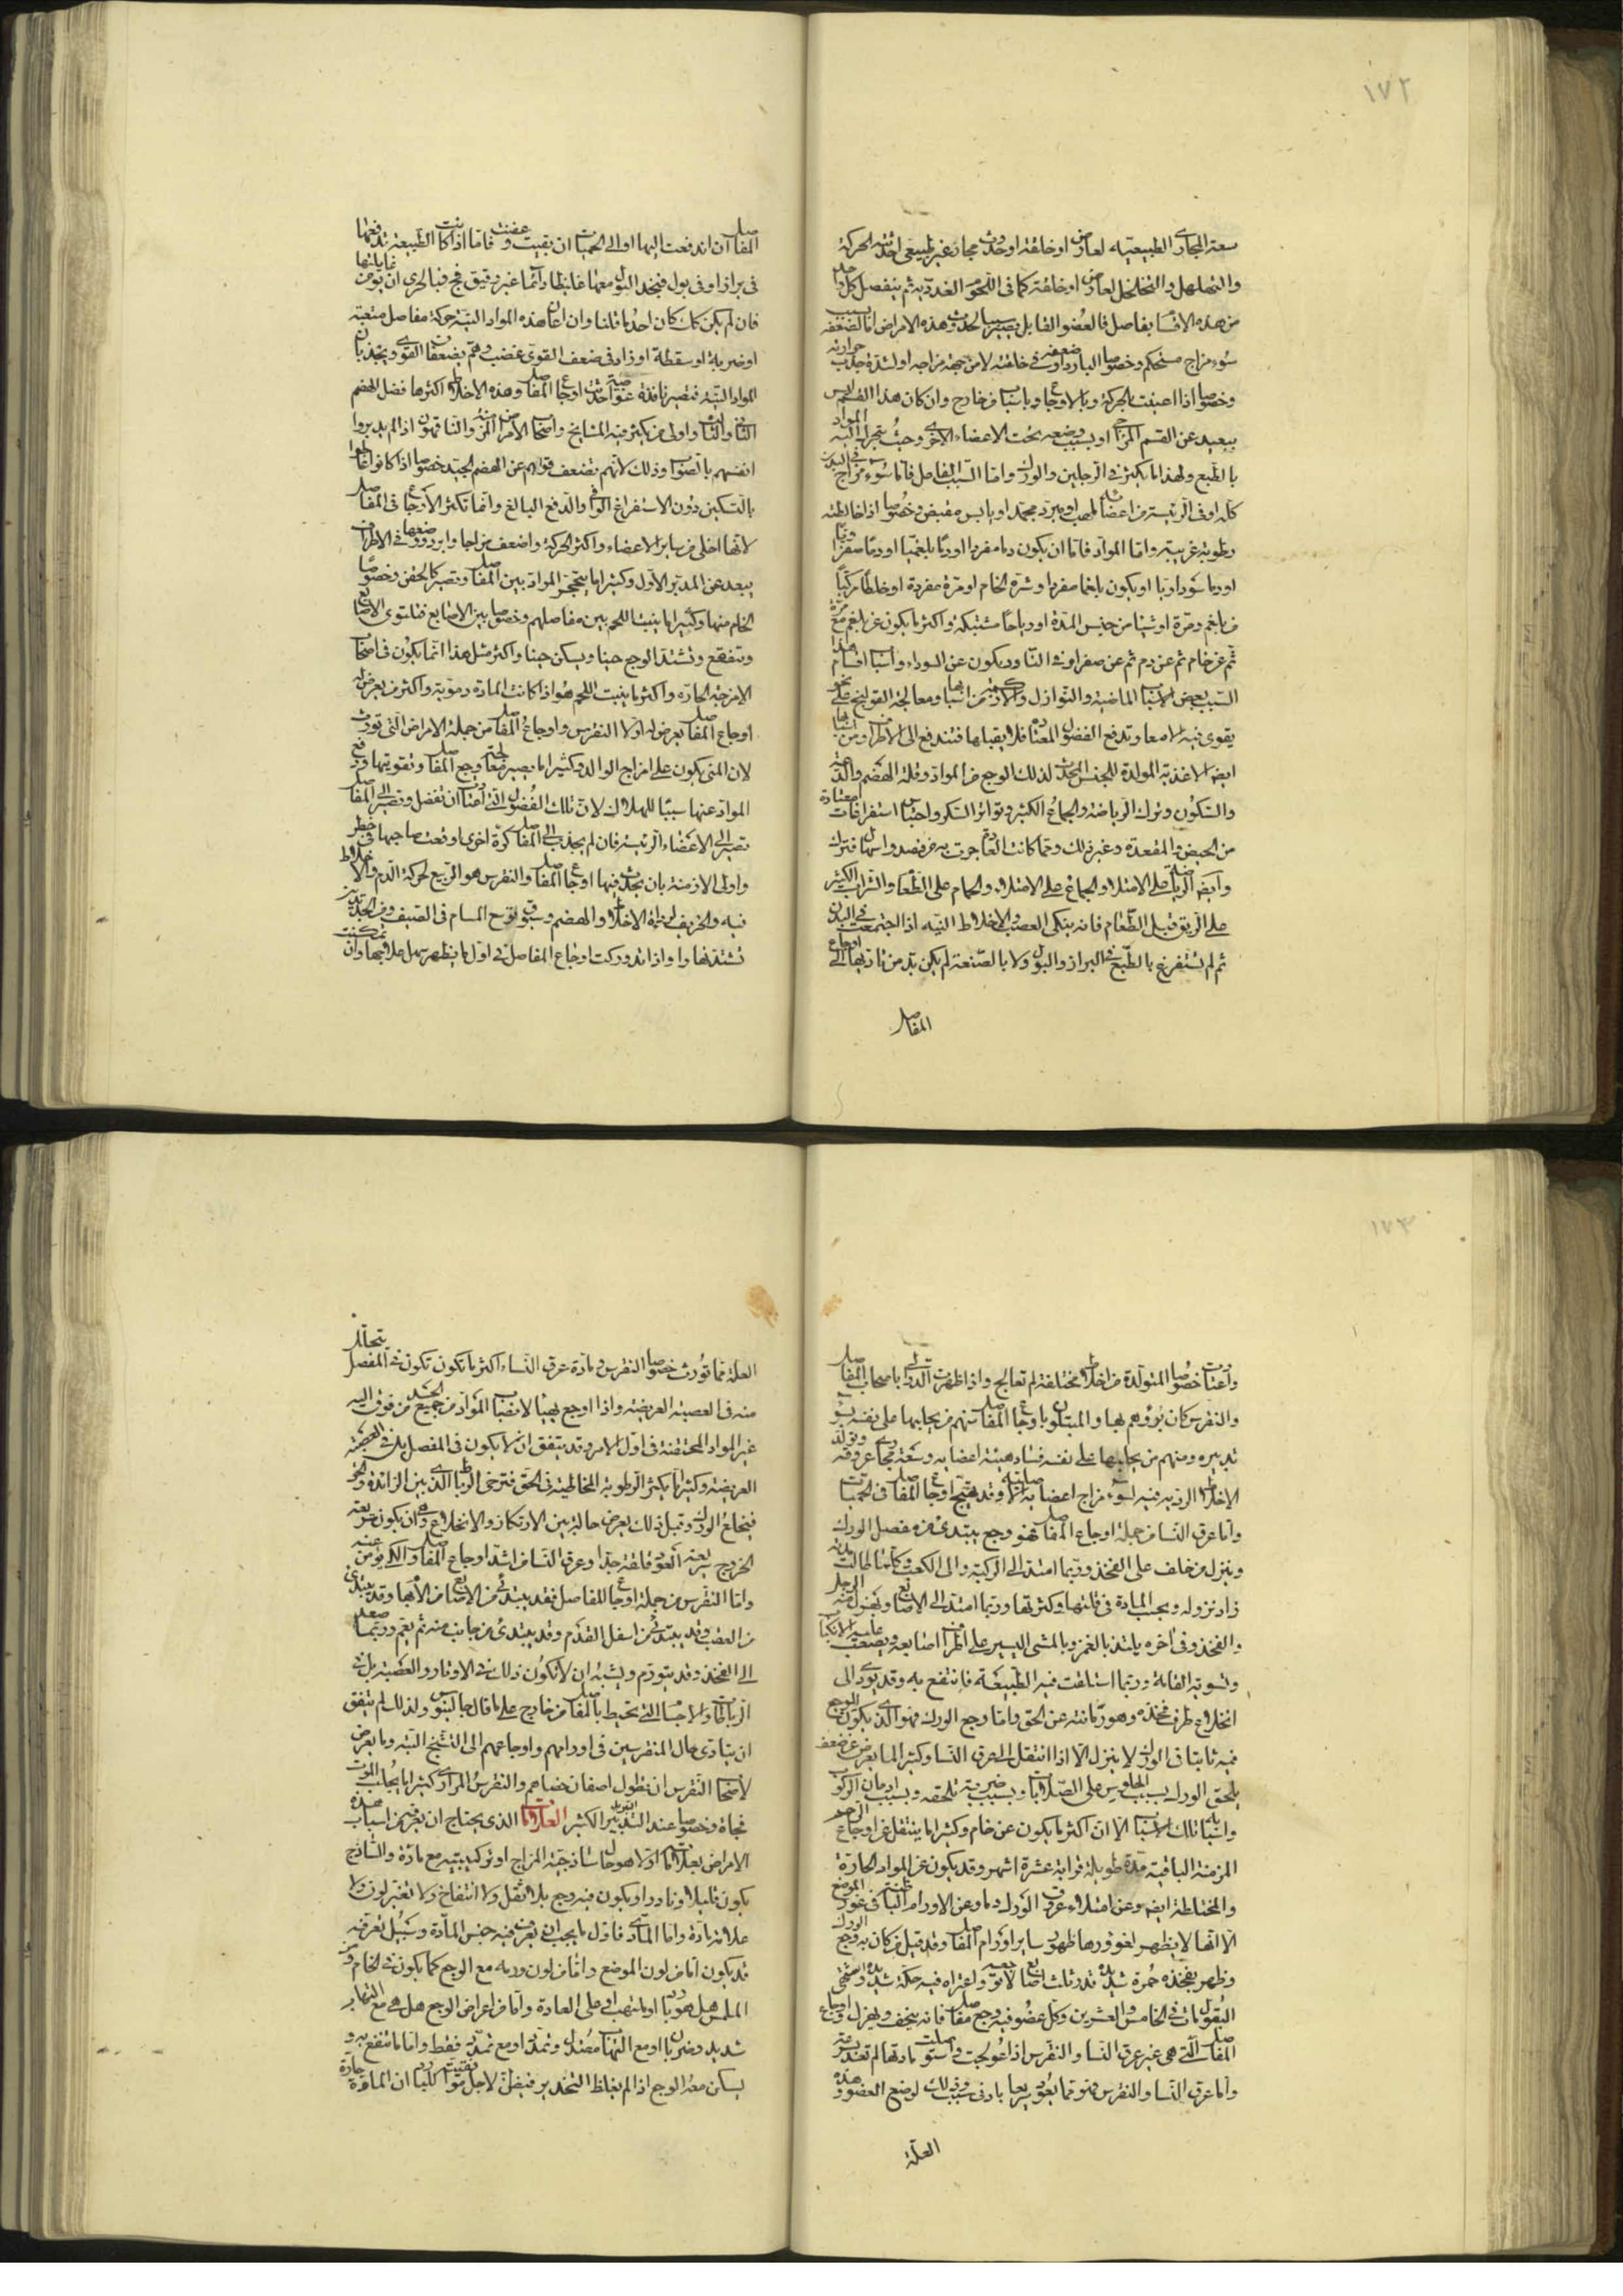 ١٧٢
سعة المجارى الطبيعية لعارض او خلقة او حدوث مجار غير طبيعى احدثته الحركة
والتهلهل والتخلخل لعارض او خلقة كما فى اللحوم الغددية ثم ينفصل كل واحد
من هذه الاقسام بفاصل فالعضو القابل يصير سببا لحدوث هذه الامراض اما لضعفه بسبب
سوء مزاج مستحكم وخصوصا البارد او ضعفه فى خلقته لا من جهة مزاجه او لشدة جذب حرارته
وخصوصا اذا اعينت بالحركة وبالاوجاع وباسباب من خارج وان كان هذا القسم ليس
ببعيد عن القسم المزاجى او بسبب وضعه تحت الاعضاء الاخرى وحيث يتحرك اليه المواد
بالطبع ولهذا ما يكثر فى الرجلين والورك واما السبب الفاعل فاما سوء مزاج فى البدن
كله او فى الرئيسة من اعضائه ملهب او مبرد مجمد او يابس مقبض وخصوصا اذا خالطته
رطوبة غريبة واما المواد فاما ان يكون دما مفردا او دما بلغميا او دما صفراويا
او دما سوداويا او يكون بلغما مفردا وشره الخام او مرة مفردة او خلطا مركبا
من بلغم ومرة او شيئا من جنس المدة او رياحا مشتبكة واكثر ما يكون عن بلغم مع مرة
ثم عن خام ثم عن دم ثم عن صفراء وفى النادر يكون عن السوداء واسباب اقسام هذا
السبب بعض الاسباب الماضية والنوازل والزكمة من اسبابها ومعالجة القولنج على نحو
يقوى فيه الامعاء وتدفع الفضول المعتادة فلا يقبلها فتندفع الى الاطراف ومن اسبابها
ايضا الاغذية المولدة للجنس المحدث لذلك الوجع من المواد وقلة الهضم والدعة
والسكون وترك الرياضة والجماع الكثير وتواتر السكر واحتباس استفراغات معتادة
من الحيض والمقعدة وغير ذلك ومما كانت العادة جرت به من فصد واسهال فترك
وايضا الرياضة على الامتلاء والجماع على الامتلاء والحمام على الطعام والشراب الكثير
على الريق قبل الطعام فانه ينكى العصب والاخلاط النية اذا اجتمعت فى البدن
ثم لم تستفرغ بالطبع فى البراز والبول ولا بالصنعة لم يكن بد من تاديتها الى اوجاع
المفاصل
المفاصل ان اندفعت اليها او الى الحميات ان بقيت وعفنت فاما اذا كانت الطبيعة تدفعها
فى براز او فى بول فيجد البول معها غليظا دائما غير رقيق فج فبالحرى ان يؤمن غائلتها
فان لم يكن كذلك كان احد ما قلنا وان اعان هذه المواد النية حركة مفاصل متعبة
او ضربة او سقطة او زاد فى ضعف القوى غضب وهم يضعفان القوى ويجذبان
المواد النية فتصير نافذة غواصة احدثت اوجاع المفاصل وهذه الاخلاط اكثرها فضل الهضم
الثانى والثالث واولى من يكثر فيه المشايخ واصحاب الامراض المزمنة والناقهون اذا لم يدبروا
انفسهم بالصواب وذلك لانهم تضعف قواهم عن الهضم الجيد خصوصا اذا كانوا عولجوا
بالتسكين دون الاستفراغ الوافى والدفع البالغ وانما تكثر الاوجاع فى المفاصل
لانها اخلى من ساير الاعضاء واكثر حركة واضعف مزاجا وابرد ووضعها فى الاطراف
يبعد عن المدبر الاول وكثيرا ما يتحجر المواد بين المفاصل وتصير كالجص وخصوصا
الخام منها وكثيرا ما ينبت اللحم بين مفاصلهم وخصوصا بين الاصابع فتلتوى الاصابع
وتتفقع وتشتد الوجع حينا ويسكن حينا واكثر مثل هذا انما يكون فى اصحاب
الامزجة الحارة واكثر ما ينبت اللحم هو اذا كانت المادة دموية واكثر من يعرض له
اوجاع المفاصل يعرض له اولا النقرس واوجاع المفاصل من جملة الامراض التى تورث
لان المنى يكون على مزاج الوالد وكثيرا ما يصير معالجة وجع المفاصل وتقويتها ودفع
المواد عنها سببا للهلاك لان تلك الفضول التى اعتادت ان تفضل وتصير الى المفاصل
تصير الى الاعضاء الرئيسة فان لم يجذب الى المفاصل كرة اخرى اوقعت صاحبها فى خطر
واولى الازمنة بان يحدث فيها اوجاع المفاصل والنقرس هو الربيع لحركة الدم والاخلاط
فيه والخريف لرداءة الاخلاط والهضم وسبوق توسع المسام فى الصيف
تشتد نهارا واذا تدوركت اوجاع المفاصل فى اول ما يظهر سهل علاجها وان تمكنت
١٧٣
واعتادت خصوصا المتولدة من اخلاط مختلفة لم تعالج واذا ظهرت الدوالى باصحاب المفاصل
والنقرس كان برؤهم بها والمبتلون باوجاع المفاصل منهم من يجلبها على نفسه بسوء
تدبيره ومنهم من يجلبها على نفسه فساد هيئة اعضائه وسعة مجارى عروقه وتولد
الاخلاط الردية فيه لسوء مزاج اعضائه الاصلية وقد يهيج اوجاع المفاصل فى الحميات
واما عرق النسا من جملة اوجاع المفاصل فهو وجع يبتدئ من مفصل الورك
وينزل من خلف على الفخذ وربما امتد الى الركبة والى الكعب وكلما طالت مدته
زاد نزوله وبحسب المادة فى قلتها وكثرتها وربما امتد الى الاصابع ويهزل منه الرجل
والفخذ وفى آخره يلتذ بالغمز وبالمشى اليسير على اطراف اصابعه ويصعب عليه الانكباب
وتسوية القامة وربما استلقت فيه الطبيعة فانتفع به وقد يؤدى الى
انخلاع طرف فخذه وهو رمانته عن الحق واما وجع الورك فهو الذى يكون الوجع
فيه ثابتا فى الورك لا ينزل الا اذا انتقل الى عرق النسا وكثيرا ما يعرض عن ضعف
يلحق الورك بسبب الجلوس على الصلابات وبسبب ضربة تلحقه وبسبب ادمان الركوب
واسبابه تلك الاسباب الا ان اكثر ما يكون عن خام وكثيرا ما ينتقل عن اوجاع الرحم
المزمنة الباقية مدة طويلة قرابة عشرة اشهر وقد يكون عن المواد الحارة
والمختلطة ايضا وعن امتلاء عروق الورك دما وعن الاورام الباطنة فى غور الموضع
الا انها لا يظهر لغورها ظهور ساير اورام المفاصل وقد قيل من كان به وجع الورك
وظهر بفخذه حمرة شديدة قدر ثلاث اصابع لا توجعه واعتراه فيه حكة شديدة واشتهى
البقول مات فى الخامس والعشرين وكل عضو فيه وجع مفاصل فانه ينحف ويهزل واوجاع
المفاصل التى هى غير عرق النسا والنقرس اذا عولجت واستوصلت مادتها لم تعد بسرعة
واما عرق النسا والنقرس فهو مما يعود سريعا بادنى سبب وذلك لوضع العضو وهذه
العلة
العلة مما تورث خصوصا النقرس ومادة عرق النساء اكثر ما تكون تكون فى المفصل يتحلل
منه فى العصبة العريضة واذا اوجع تهيا لانصباب المواد من جميع الجسد من فوق اليه
غير المواد المحتقنة فى اول الامر وقد يتفق ان لا يكون فى المفصل بل فى العصبة
العريضة وكثيرا ما يكثر الرطوبة المخاطية فى الحق فترخى الرباط الذى بين الزائدة والحق
فينخلع الورك وقبل ذلك يعرض حالة بين الارتكاز والانخلاع وهى ان يكون سريعة
الخروج سريعة العود قلقة جدا وعرق النسا من اشد اوجاع المفاصل والكى يؤمن عنه
واما النقرس من جملة اوجاع المفاصل فقد يبتدئ من الاصابع من الابهام وقد يبتدئ
من العقب وقد يبتدئ من اسفل القدم وقد يبتدئ من جانب منه ثم يعم وربما صعد
الى الفخذ وقد يتورم ويشبه ان لا تكون ذلك فى الاوتار والعصبة بل فى
الرباطات والاجسام التى تحيط بالمفاصل من خارج على ما قال جالينوس ولذلك لم يتفق
ان يتادى حال المنقرسين فى اورامهم واوجاعهم الى التشنج البتة ومما يعرض
لاصحاب النقرس ان تطول اصفان خصاهم والنقرس المرارى كثيرا ما يجلب الموت
فجاة وخصوصا عند التبريد الكثير العلامات الذى يحتاج ان يعرف من اسباب هذه
الامراض بعلاماتها اولا هو حال ساذجية المزاج او تركيبيته مع مادة والساذج
يكون قليلا ونادرا ويكون فيه وجع بلا ثقل ولا انتفاخ ولا تغير لون ولا
علامة مادة واما المادى فاول ما يجب ان يعرف فيه جنس المادة وسبيل تعرفه
قد يكون اما من لون الموضع واما من لون ورمه مع الوجع كما يكون فى الخام ومن
الملمس هل هو بارد او ملتهب او على العادة واما من اعراض الوجع هل هى مع التهاب
شديد وضربان او مع التهاب معتدل وتمدد او مع تمدد فقط واما ما ينتفع به و
يسكن معه الوجع اذا لم يغلظ التخدير فيظن لاجل موافقته البرد كليا ان المادة حارة